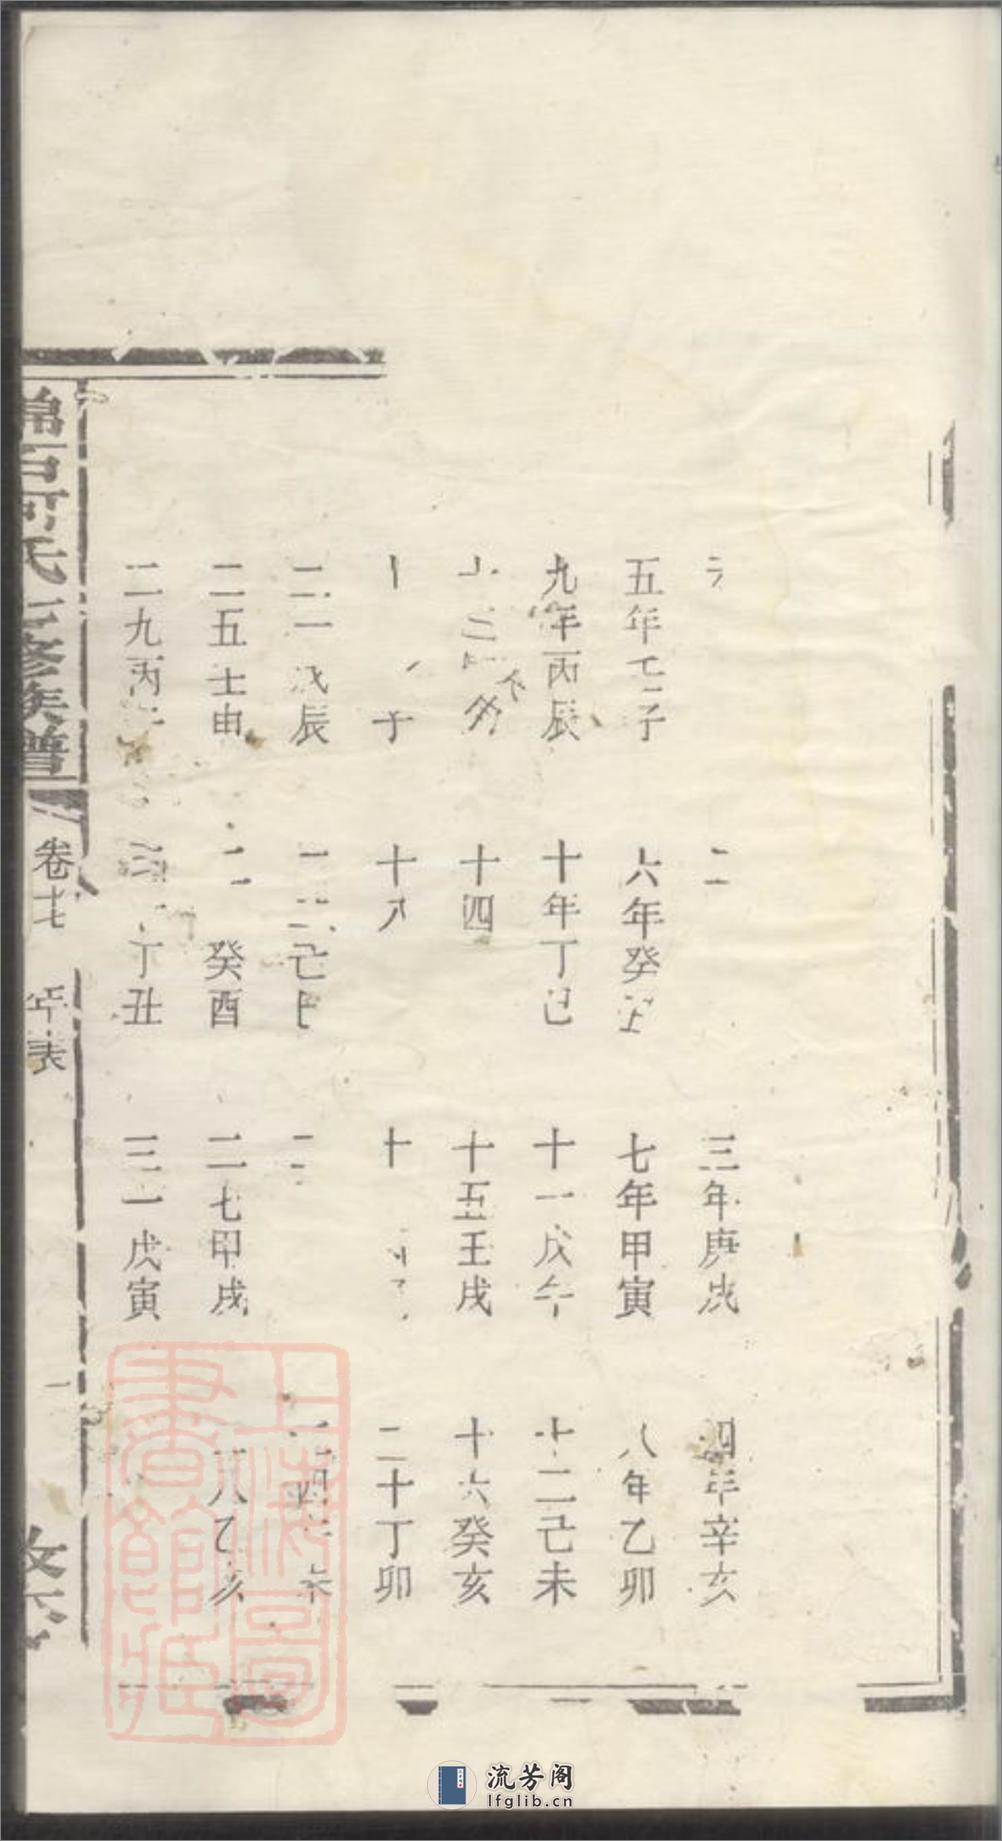 二 三年庚戌 四年辛亥
五年壬子 六年癸丑 七年甲寅 八年乙卯
九年丙辰 十年丁巳 十一戊午 十二己未
三 十四 十五壬戌 十六癸亥
子 十八 十 二十丁卯
二一戊辰 己巳 四 未
二五壬申 二 癸酉 二七甲戌 八乙亥
二九丙 丁丑 三一戊寅
錦石何氏七修族譜 卷七 年表 一
上海圖書館藏
流芳阁
lfglib.cn